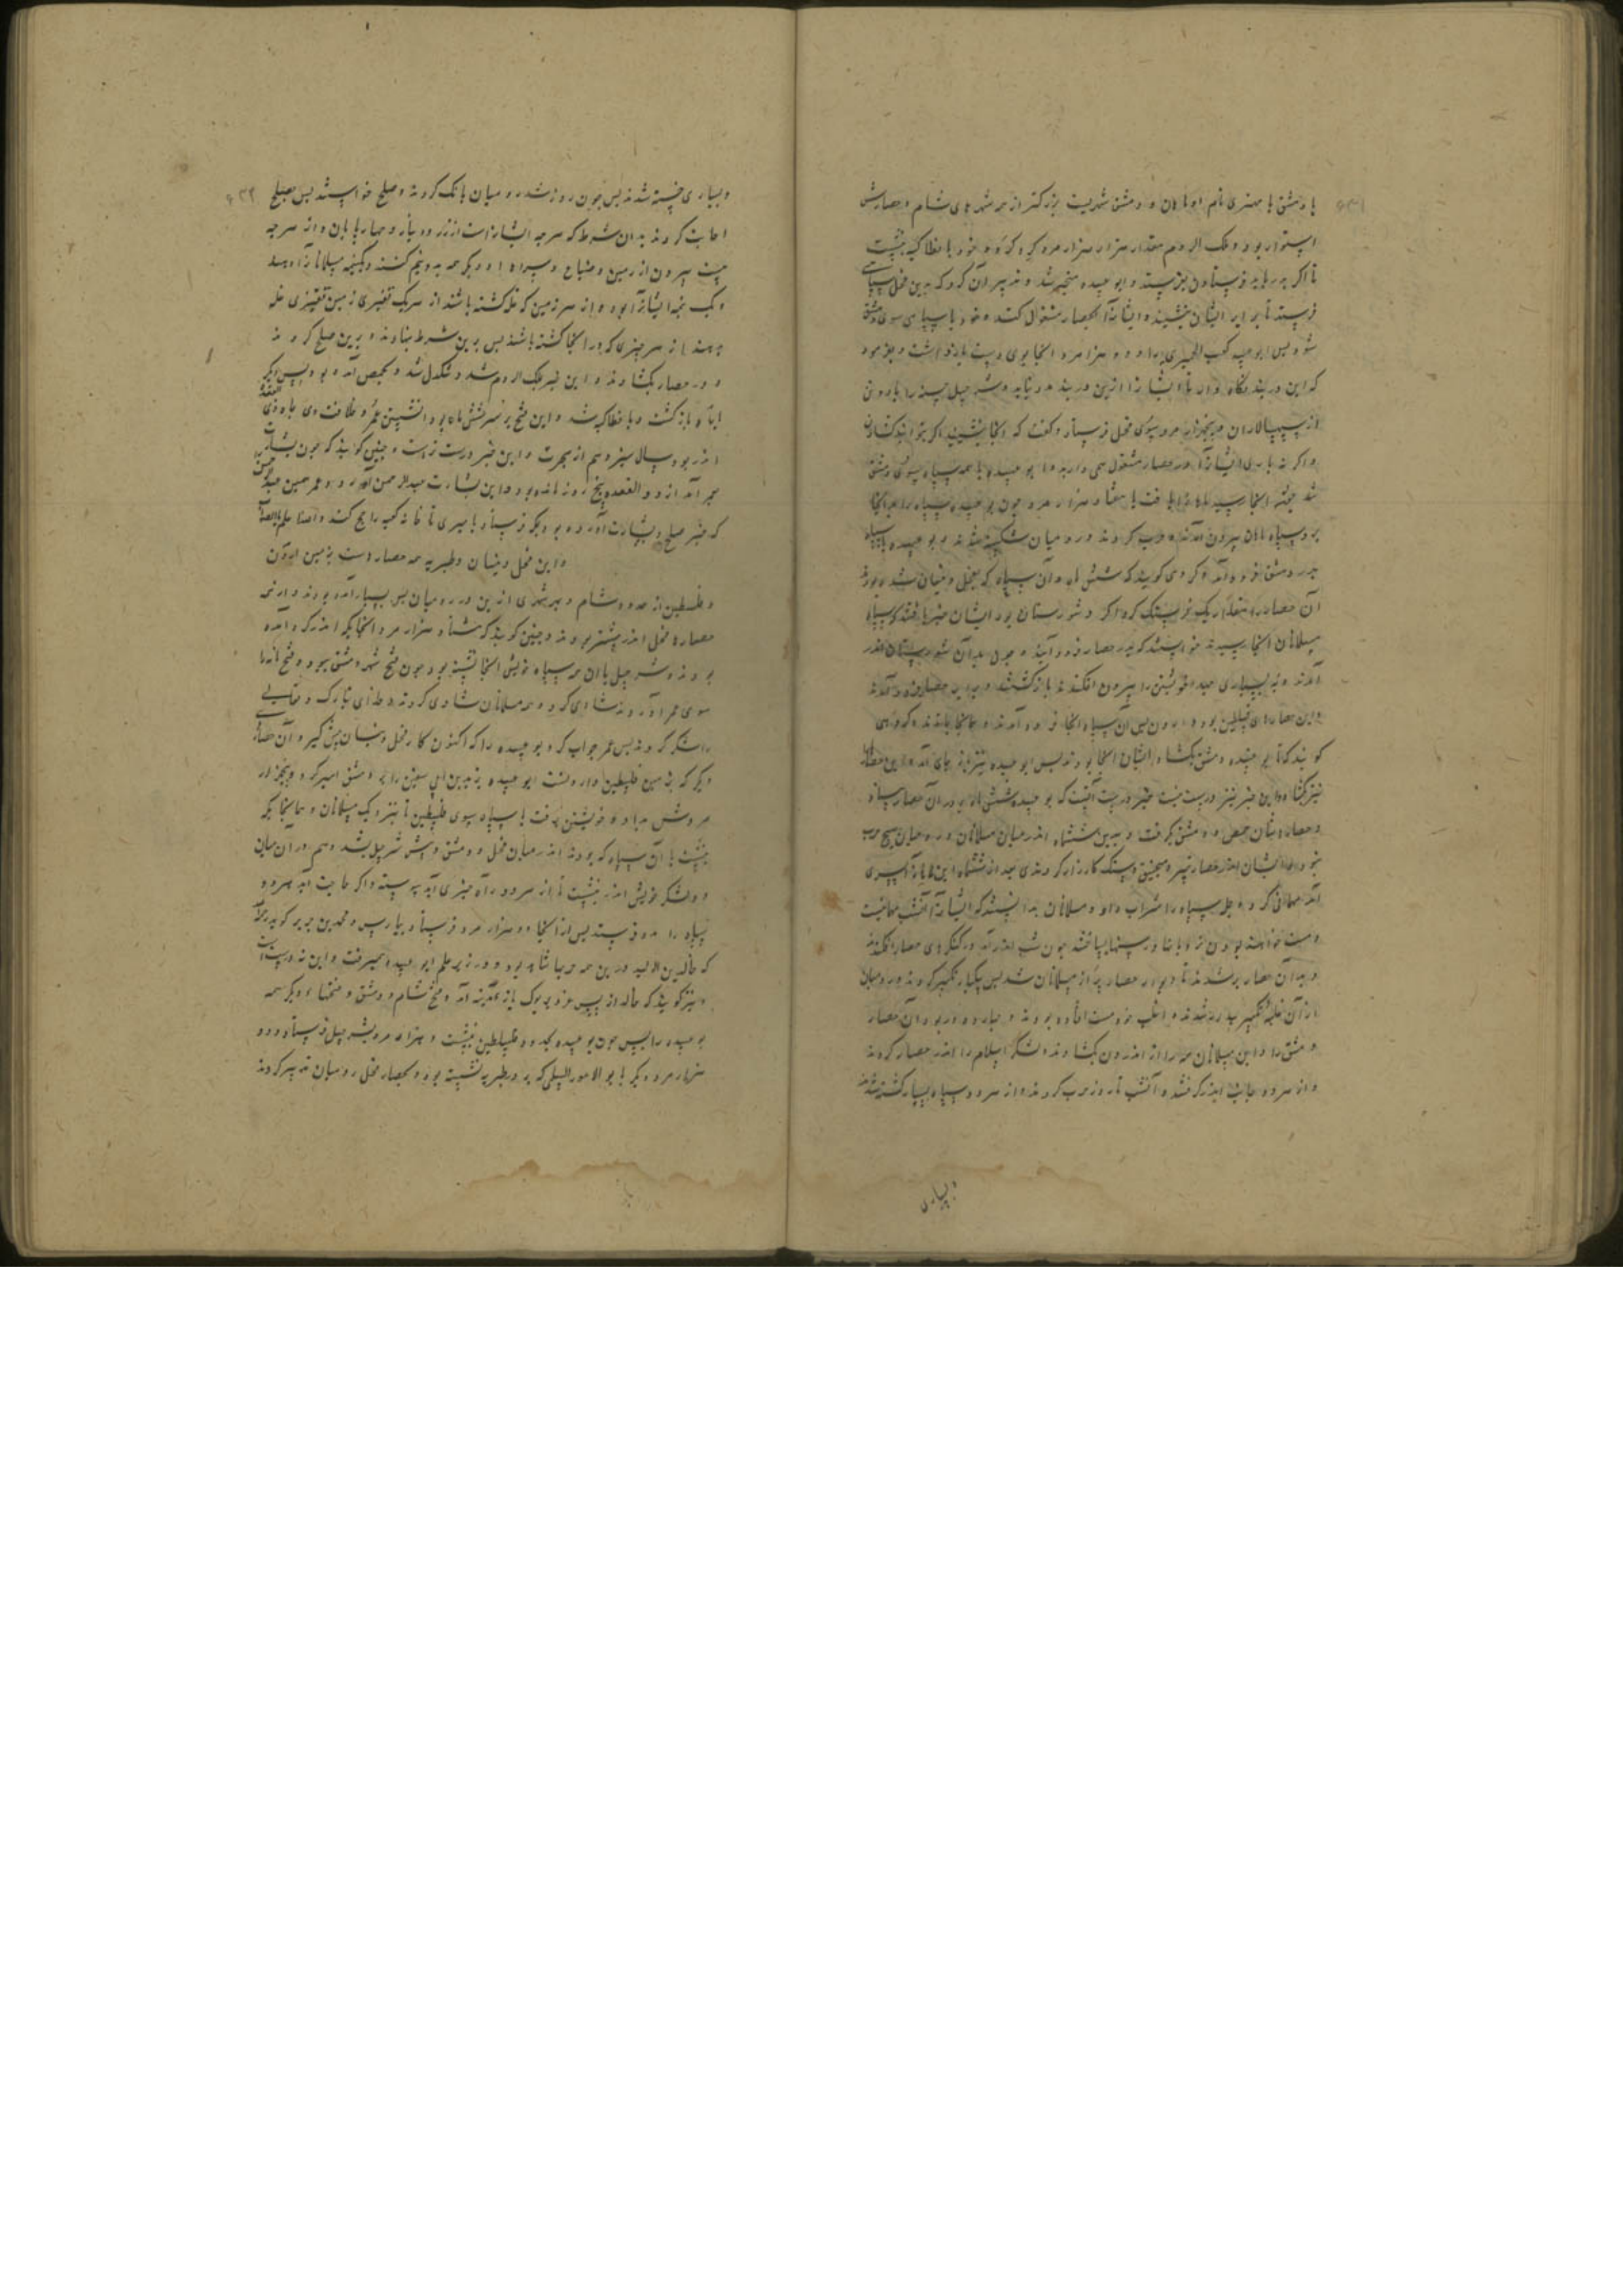 با دمشق با مهتری نام او ماهان و دمشق شهریست بزرکتر از همه شهرهای شام و حصارش
استوار بود و ملک الروم مقدار هزار هزار مرد کرد کرده و خود بانطاکیه بنشست
تا اکر مدد باید فرستادن بفرستد و ابو عبیده متحیر شد و تدبیر آن کرد که بدین فحل سپاهی
فرستد تا برابر ایشان بنشیند و ایشانرا بحصار مشغول کند و خود با سپاهی سوی دمشق
شود پس ابو عبیده کعب الحمیری را و ده هزار مرد آنجا بوی دست بازداشت و بفرمود
که این دربند نگاه دار تا ایشانرا ازین دربند مدد نیاید و شرحبیل حسنه را با دو تن
از سپهسالاران و پنجهزار مرد بسوی فحل فرستاد و کفت که آنجا بنشینید اکر بتوانید کشادن
و اکر نه باری ایشانرا در حصار مشغول همی دارید و ابو عبیده با همه سپاه بسوی دمشق
شد چون آنجا رسید ماهانرا یافت با هفتاد هزار مرد و چون بو عبیده سپاه را بدانجا
برد سپاه ماهان بیرون آمدند و حرب کردند و رومیان شکسته شدند و بو عبیده با سپاه
بدر دمشق فرود آمد و کروهی کویند که شش ماه و آن سپاه که بفحل و بیسان شده بودند
آن حصار را مقدار یک فرسنک کرداکرد شورستان بود ایشان خبر یافتند که سپاه
مسلمانان آنجا رسید خواستند که بدر حصار فرود آیند و چون بدان شورستان اندر
آمدند و به بسیاری جهد خویشتن را بیرون افکندند بازکشتند و برابر حصار فرود آمدند
کویند که تا بو عبیده دمشق بکشاد ایشان آنجا بودند پس ابو عبیده نیز باز جای آمد و این حصار
نیز بکشاد و این خبر نیز درست نیست خبر درست آنست که بو عبیده شش ماه بر در آن حصار بماند
و حصارهاشان حمص و دمشق بکرفت و بدین ششماه اندر میان مسلمانان و رومیان هیچ حرب
نبود و ایشان اندر حصار بتیر و منجنیق و سنک کارزار کردندی بعد از ششماه این ماهانرا پسری
آمد مهمانی کرد و جمله سپاه را شراب داد و مسلمانان بدانستند که ایشانرا آنشب مهمانیست
و مست خواهند بودن نردبانها و رسنها بساختند چون شب اندر آمد در کنکرهای حصار افکندند
و بدان حصار برشدند تا دیوار حصار پر از مسلمانان شد پس یکبار تکبیر کردند و رومیان
از آن غلبه تکبیر بیدار شدند و اغلب خود مست افتاده بودند و چهار در بود آن حصار
دمشق را و این مسلمانان همه را از اندرون بکشادند و لشکر اسلام را اندر حصار کردند
و از هر دو جانب اندرکرفتند و آنشب تا روز حرب کردند و از هر دو سپاه بسیار کشته شدند
و بسیاری
و بسیاری خسته شدند پس چون روز شد رومیان بانک کردند و صلح خواستند پس بصلح
اجابت کردند بدان شرط که هرچه ایشانراست از زر و دینار و چهارپایان و از هرچه
هست بیرون از زمین و ضیاع و سرای و دیکر همه بدو نیم کنند و یک نیمه مسلمانانرا دهند
و یک نیمه ایشانرا بود و از هر زمین که غله کشته باشند از هر یک قفیزی زمین قفیزی غله
بدهند از هر چیزی که در آنجا کشته باشند پس برین شرط بنهادند و برین صلح کردند
و در حصار بکشادند و این خبر بملک الروم شد و تنکدل شد و بحمص آمده بود پس دیکر
باره بازکشت و بانطاکیه شد و این فتح بر سر شش ماه بود از نشستن عمر بخلافت وی ماه ذی القعده
اندر بود سال سیزدهم از هجرت و این خبر درست تر است و چنین کویند که چون بشارت
بعمر آمد از ذو القعده پنج روز مانده بود و این بشارت عبدالرحمن آورد و عمر همین عبدالرحمن
که خبر صلح و بشارت آورده بود بمکه فرستاد بامیری تا خانه کعبه را حج کند و الله اعلم بالصواب
و این فحل و بیسان و طبریه همه حصار است بزمین اردن
و فلسطین از حدود شام و بهر شهری ازین در رومیان بس بسیار آمده بودند و ازین
حصارها بفحل اندر بیشتر بودند و چنین کویند که هشتاد هزار مرد آنجا یکجا اندر کرد آمده
بودند و شرحبیل با آن همه سپاه خویش آنجا نشسته بود چون فتح شهر دمشق ببود و فتح نامه
سوی عمر آوردند شادی کرد و همه مسلمانان شادی کردند و خدای تبارک و تعالی
را شکر کردند پس عمر جواب کرد بو عبیده را که اکنون کار فحل و بیسان پیش کیر و آن حصارهای
دیکر که بزمین فلسطین دارد پس ابو عبیده یزید بن ابی سفین را بر دمشق امیر کرد و پنجهزار
مرد دست بداد و خویشتن برفت با سپاه بسوی فلسطین تا بنزدیک مسلمانان و هم آنجا یکی
بنشست با آن سپاه که بودند اندر میان فحل و دمشق و پیش شرحبیل نشد و هم در آن میان
و دو لشکر خویش اندر بنشست تا از هر دو راه خبری آید پیوسته و اکر حاجت آید هر دو
سپاه را مدد فرستد پس از آنجا ده هزار مرد فرستاد بپارس و محمد بن جریر کوید رحمه الله
که خالد بن الولید درین همه حربها شاهد بود و در زیر علم ابو عبیده همیرفت و این نه درست است
و نیز کویند که خالد از پس غزو یرموک باز بمدینه آمد و فتح شام و دمشق و فتحهاء دیکر همه
بو عبیده را پس چون بو عبیده بیامد و بفلسطین بنشست و هزار مرد بشرحبیل فرستاد و ده
هزار مرد دیکر با بو الاعور السلمی که بر در طبریه نشسته بود و بحصار فحل رومیان تدبیر کردند